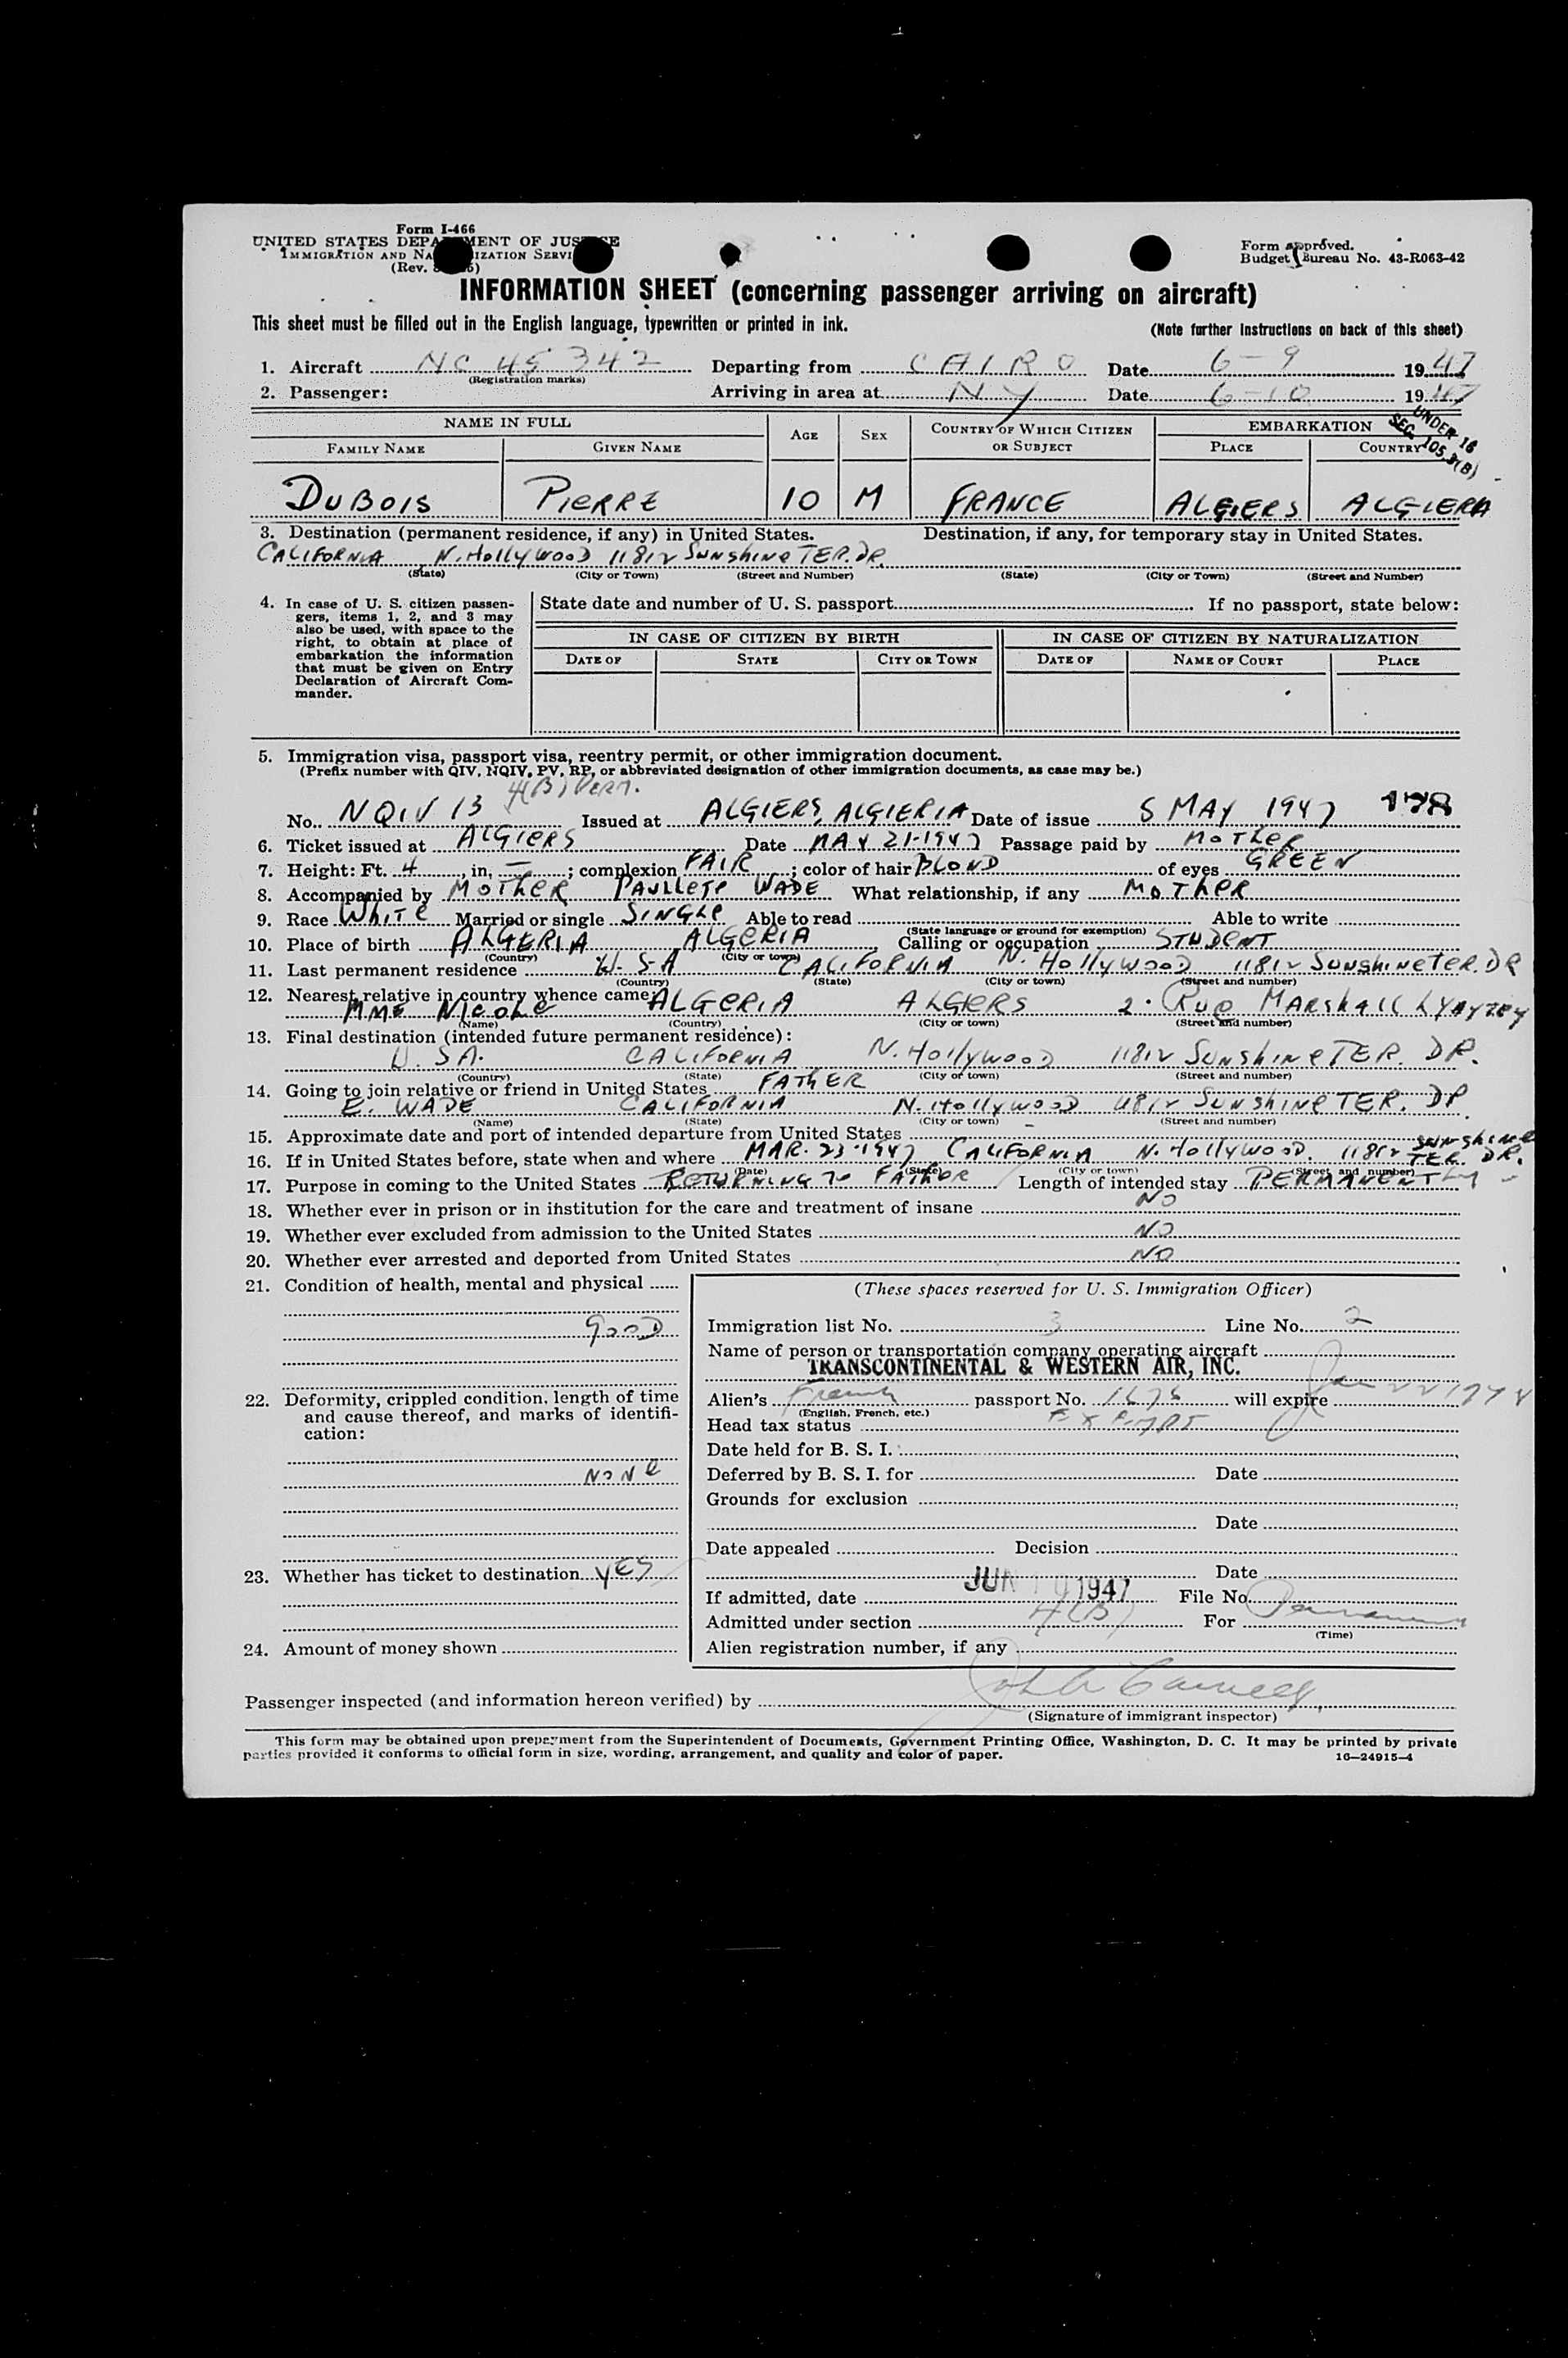 Form I-466
UNITED STATES DEPARTMENT OF JUSTICE
IMMIGRATION AND NATURALIZATION SERVICE
(Rev.
Form approved.
Budget Bureau No. 43-R063-42
INFORMATION SHEET (concerning passenger arriving on aircraft)
This sheet must be filled out in the English language, typewritten or printed in ink.
(Note further instructions on back of this sheet)
1. Aircraft NC 45342 Departing from CAIRO Date 6-9 1947
(Registration marks)
2. Passenger: Arriving in area at NY Date 6-10 1947
UNDER 16
SEC. 105.3(B)
NAME IN FULL AGE SEX COUNTRY OF WHICH CITIZEN OR SUBJECT EMBARKATION
FAMILY NAME GIVEN NAME PLACE COUNTRY
DUBOIS PIERRE 10 M FRANCE ALGIERS ALGIERA
3. Destination (permanent residence, if any) in United States. Destination, if any, for temporary stay in United States.
CALIFORNIA N. HollyWOOD 11812 SUNShINe TER. DR.
(State) (City or Town) (Street and Number) (State) (City or Town) (Street and Number)
4. In case of U. S. citizen passen-
gers, items 1, 2, and 3 may
also be used, with space to the
right, to obtain at place of
embarkation the information
that must be given on Entry
Declaration of Aircraft Com-
mander.
State date and number of U. S. passport If no passport, state below:
IN CASE OF CITIZEN BY BIRTH IN CASE OF CITIZEN BY NATURALIZATION
DATE OF STATE CITY OR TOWN DATE OF NAME OF COURT PLACE
5. Immigration visa, passport visa, reentry permit, or other immigration document.
(Prefix number with QIV, NQIV, PV, RP, or abbreviated designation of other immigration documents, as case may be.)
4(B) PERM.
No. NQIV 13 Issued at ALGIERS, ALGIERIA Date of issue 5 MAY 1947 178
6. Ticket issued at ALGIERS Date MAY 21-1947 Passage paid by MOTHER
7. Height: Ft. 4, in. —; complexion FAIR; color of hair BLOND of eyes GREEN
8. Accompanied by MOTHER PAULLETE WADE What relationship, if any MOTHER
9. Race White Married or single SINGLe Able to read Able to write
(State language or ground for exemption)
10. Place of birth ALGERIA ALGERIA Calling or occupation STUDENT
(Country) (City or town)
11. Last permanent residence U.S.A CALIFORNIA N. HOllyWOOD 11812 SUNShINe TER. DR
(Country) (State) (City or town) (Street and number)
12. Nearest relative in country whence came:
MME NICOLE ALGERIA ALGIERS 2. RUE MARSHALL
(Name) (Country) (City or town) (Street and number)
13. Final destination (intended future permanent residence):
U.SA. CALIFORNIA N. HOllyWOOD 11812 SUNShINe TER. DR.
(Country) (State) (City or town) (Street and number)
14. Going to join relative or friend in United States FATHER
E. WADE CALIFORNIA N. HOllyWOOD 11812 SUNShINe TER. DR.
(Name) (State) (City or town) (Street and number)
15. Approximate date and port of intended departure from United States
16. If in United States before, state when and where MAR. 23-1947 CALIFORNIA N. HOllyWOOD. 11812 SUNShINe TER. DR.
(Date) (State) (City or town) (Street and number)
17. Purpose in coming to the United States RETURNING TO FATHER Length of intended stay PERMANENTLY
18. Whether ever in prison or in institution for the care and treatment of insane NO
19. Whether ever excluded from admission to the United States NO
20. Whether ever arrested and deported from United States NO
21. Condition of health, mental and physical
GOOD
22. Deformity, crippled condition, length of time
and cause thereof, and marks of identifi-
cation:
NONe
23. Whether has ticket to destination YES
24. Amount of money shown
(These spaces reserved for U. S. Immigration Officer)
Immigration list No. 3 Line No. 2
Name of person or transportation company operating aircraft
TRANSCONTINENTAL & WESTERN AIR, INC.
Alien's French passport No. 1676 will expire Jan 22 1948
(English, French, etc.)
Head tax status EXEMPT
Date held for B. S. I.
Deferred by B. S. I. for Date
Grounds for exclusion
Date
Date appealed Decision
Date
If admitted, date JUN 10 1947 File No.
Admitted under section 4(B) For Permanent
(Time)
Alien registration number, if any
Passenger inspected (and information hereon verified) by
(Signature of immigrant inspector)
This form may be obtained upon prepayment from the Superintendent of Documents, Government Printing Office, Washington, D. C. It may be printed by private
parties provided it conforms to official form in size, wording, arrangement, and quality and color of paper.
16—24915-4